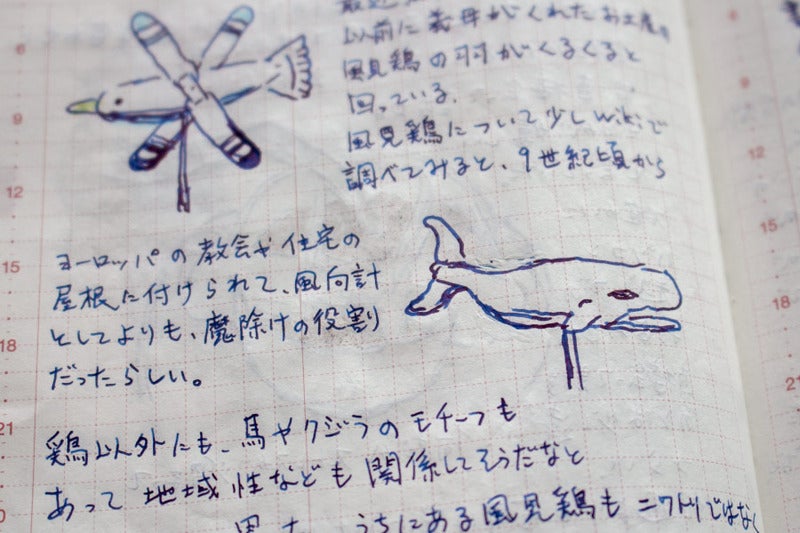 以前に義母がくれたお土産の
風見鶏の羽がくるくると
回っている.
風見鶏について少しwikiで
調べてみると、9世紀頃から
ヨーロッパの教会や住宅の
屋根に付けられて、風向計
としてよりも、魔除けの役割
だったらしい。
鶏以外にも、馬やクジラのモチーフも
あって 地域性なども関係してそうだなと
うちにある風見鶏もニワトリではなく
6
9
12
15
18
21
18